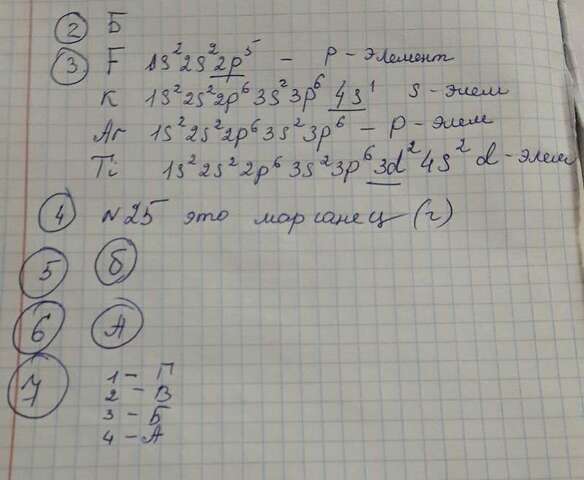 2 Б
3 F 1s² 2s² 2p⁵ – p-элемент
K 1s² 2s² 2p⁶ 3s² 3p⁶ 4s¹ s-элем
Ar 1s² 2s² 2p⁶ 3s² 3p⁶ – p-элем
Ti 1s² 2s² 2p⁶ 3s² 3p⁶ 3d² 4s² d-элем
4 N 25 это марганец (г)
5 б
6 А
7 1 – Г
2 – В
3 – Б
4 – А